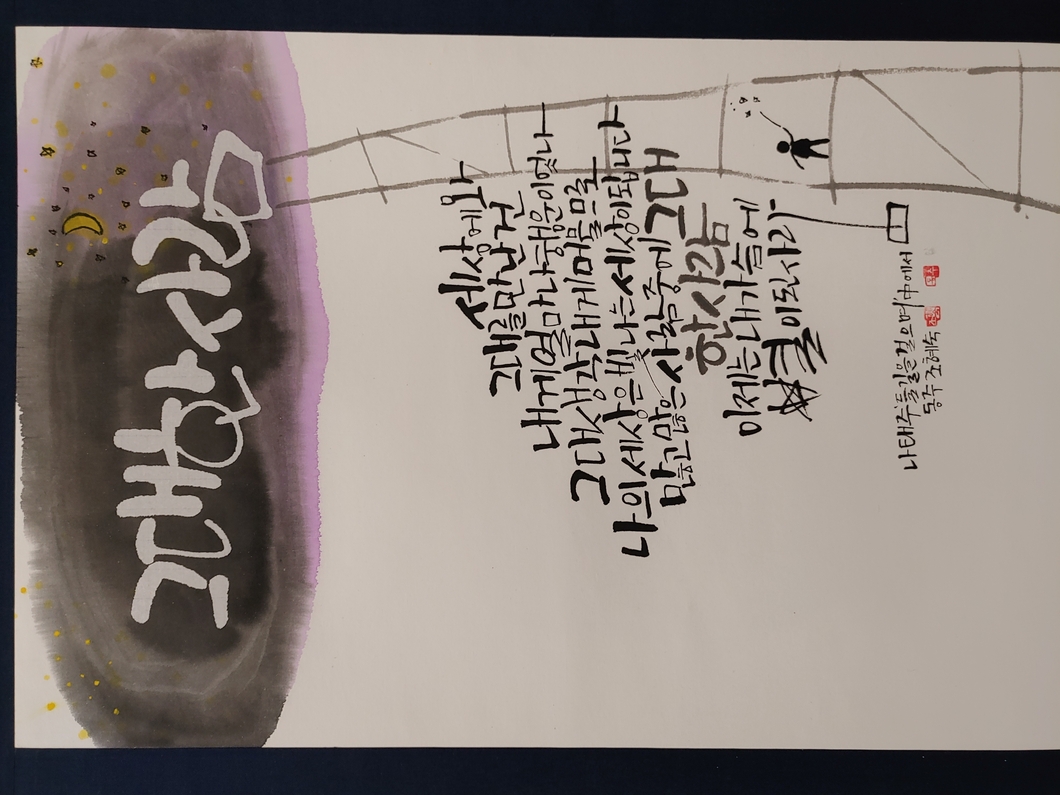 그대 한 사람
세상에 와
그대를 만난 건
내게 얼마나 행운이었나
그대 생각 내게 머물므로
나의 세상은 빛나는 세상이 됩니다
많고 많은 사람 중에 그대
한 사람
이제는 내 가슴에
별이 된 사람
나태주 들길을 걸으며 中에서
동주 조혜숙